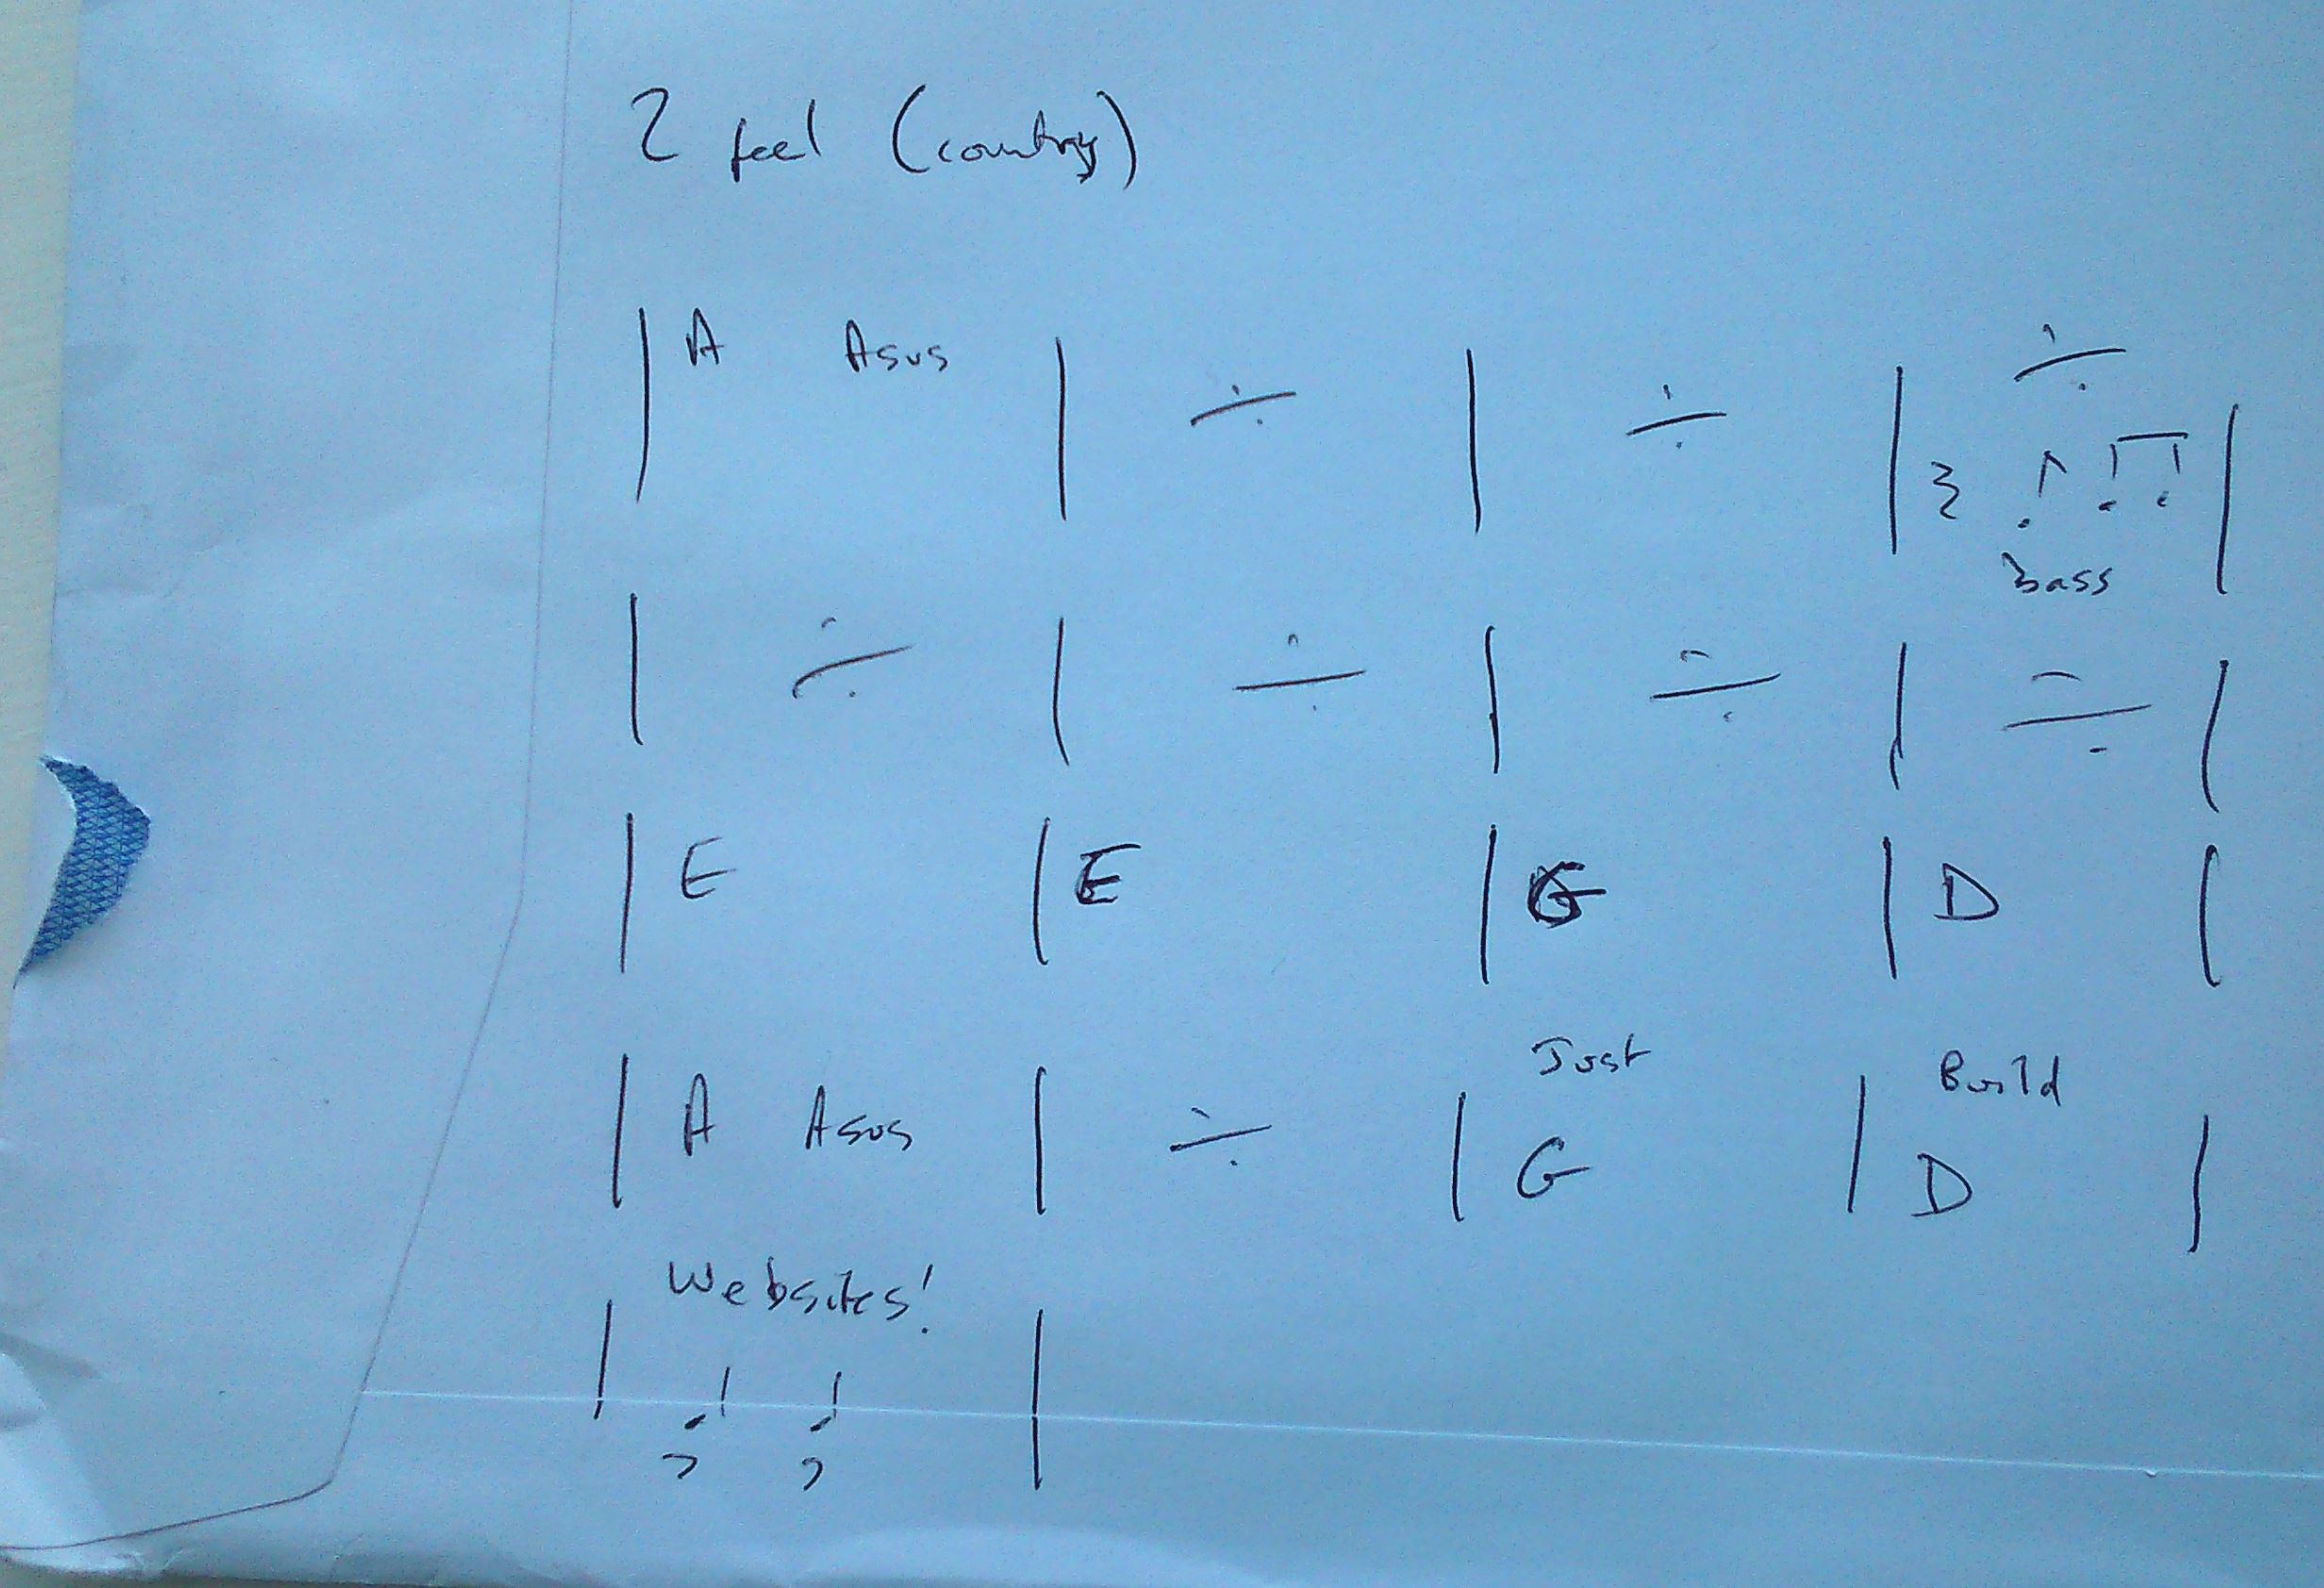 2 feel (country)
| A Asus | ÷ | ÷ | ÷ |
bass
| ÷ | ÷ | ÷ | ÷ |
| E | E | G | D |
Just Build
| A Asus | ÷ | G | D |
Websites!